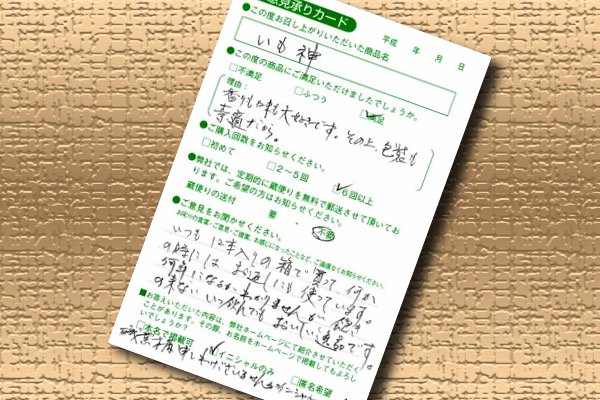 意見承りカード
平成　年　月　日
●この度お召し上がりいただいた商品名
いも神
●この度の商品にご満足いただけましたでしょうか。
□不満足　□ふつう　☑満足
理由：
香りも味も大好きです。その上、包装も
素適だから。
●ご購入回数をお知らせください。
□初めて　□2～5回　☑6回以上
●弊社では、定期的に蔵便りを無料で郵送させて頂いてお
ります。ご希望の方はお知らせください。
蔵便りの送付　要・不要
●ご意見をお聞かせください。
お叱りの言葉・ご意見・ご提案、お感じになったことなど、ご遠慮なくお知らせください。
いつも12本入りの箱で買って何か
の時には お返しにも使っています。
何年になるかわかりませんが 飽き
の来ない、いつ飲んでもおいしい逸品です。
■お答えいただいた内容は、弊社ホームページにて紹介させていただく
ことがあります。その際、お名前をホームページで掲載してもよろし
いでしょうか？
□本名で掲載可　☑イニシャルのみ　□匿名希望
申しわけございませんがイニシャル